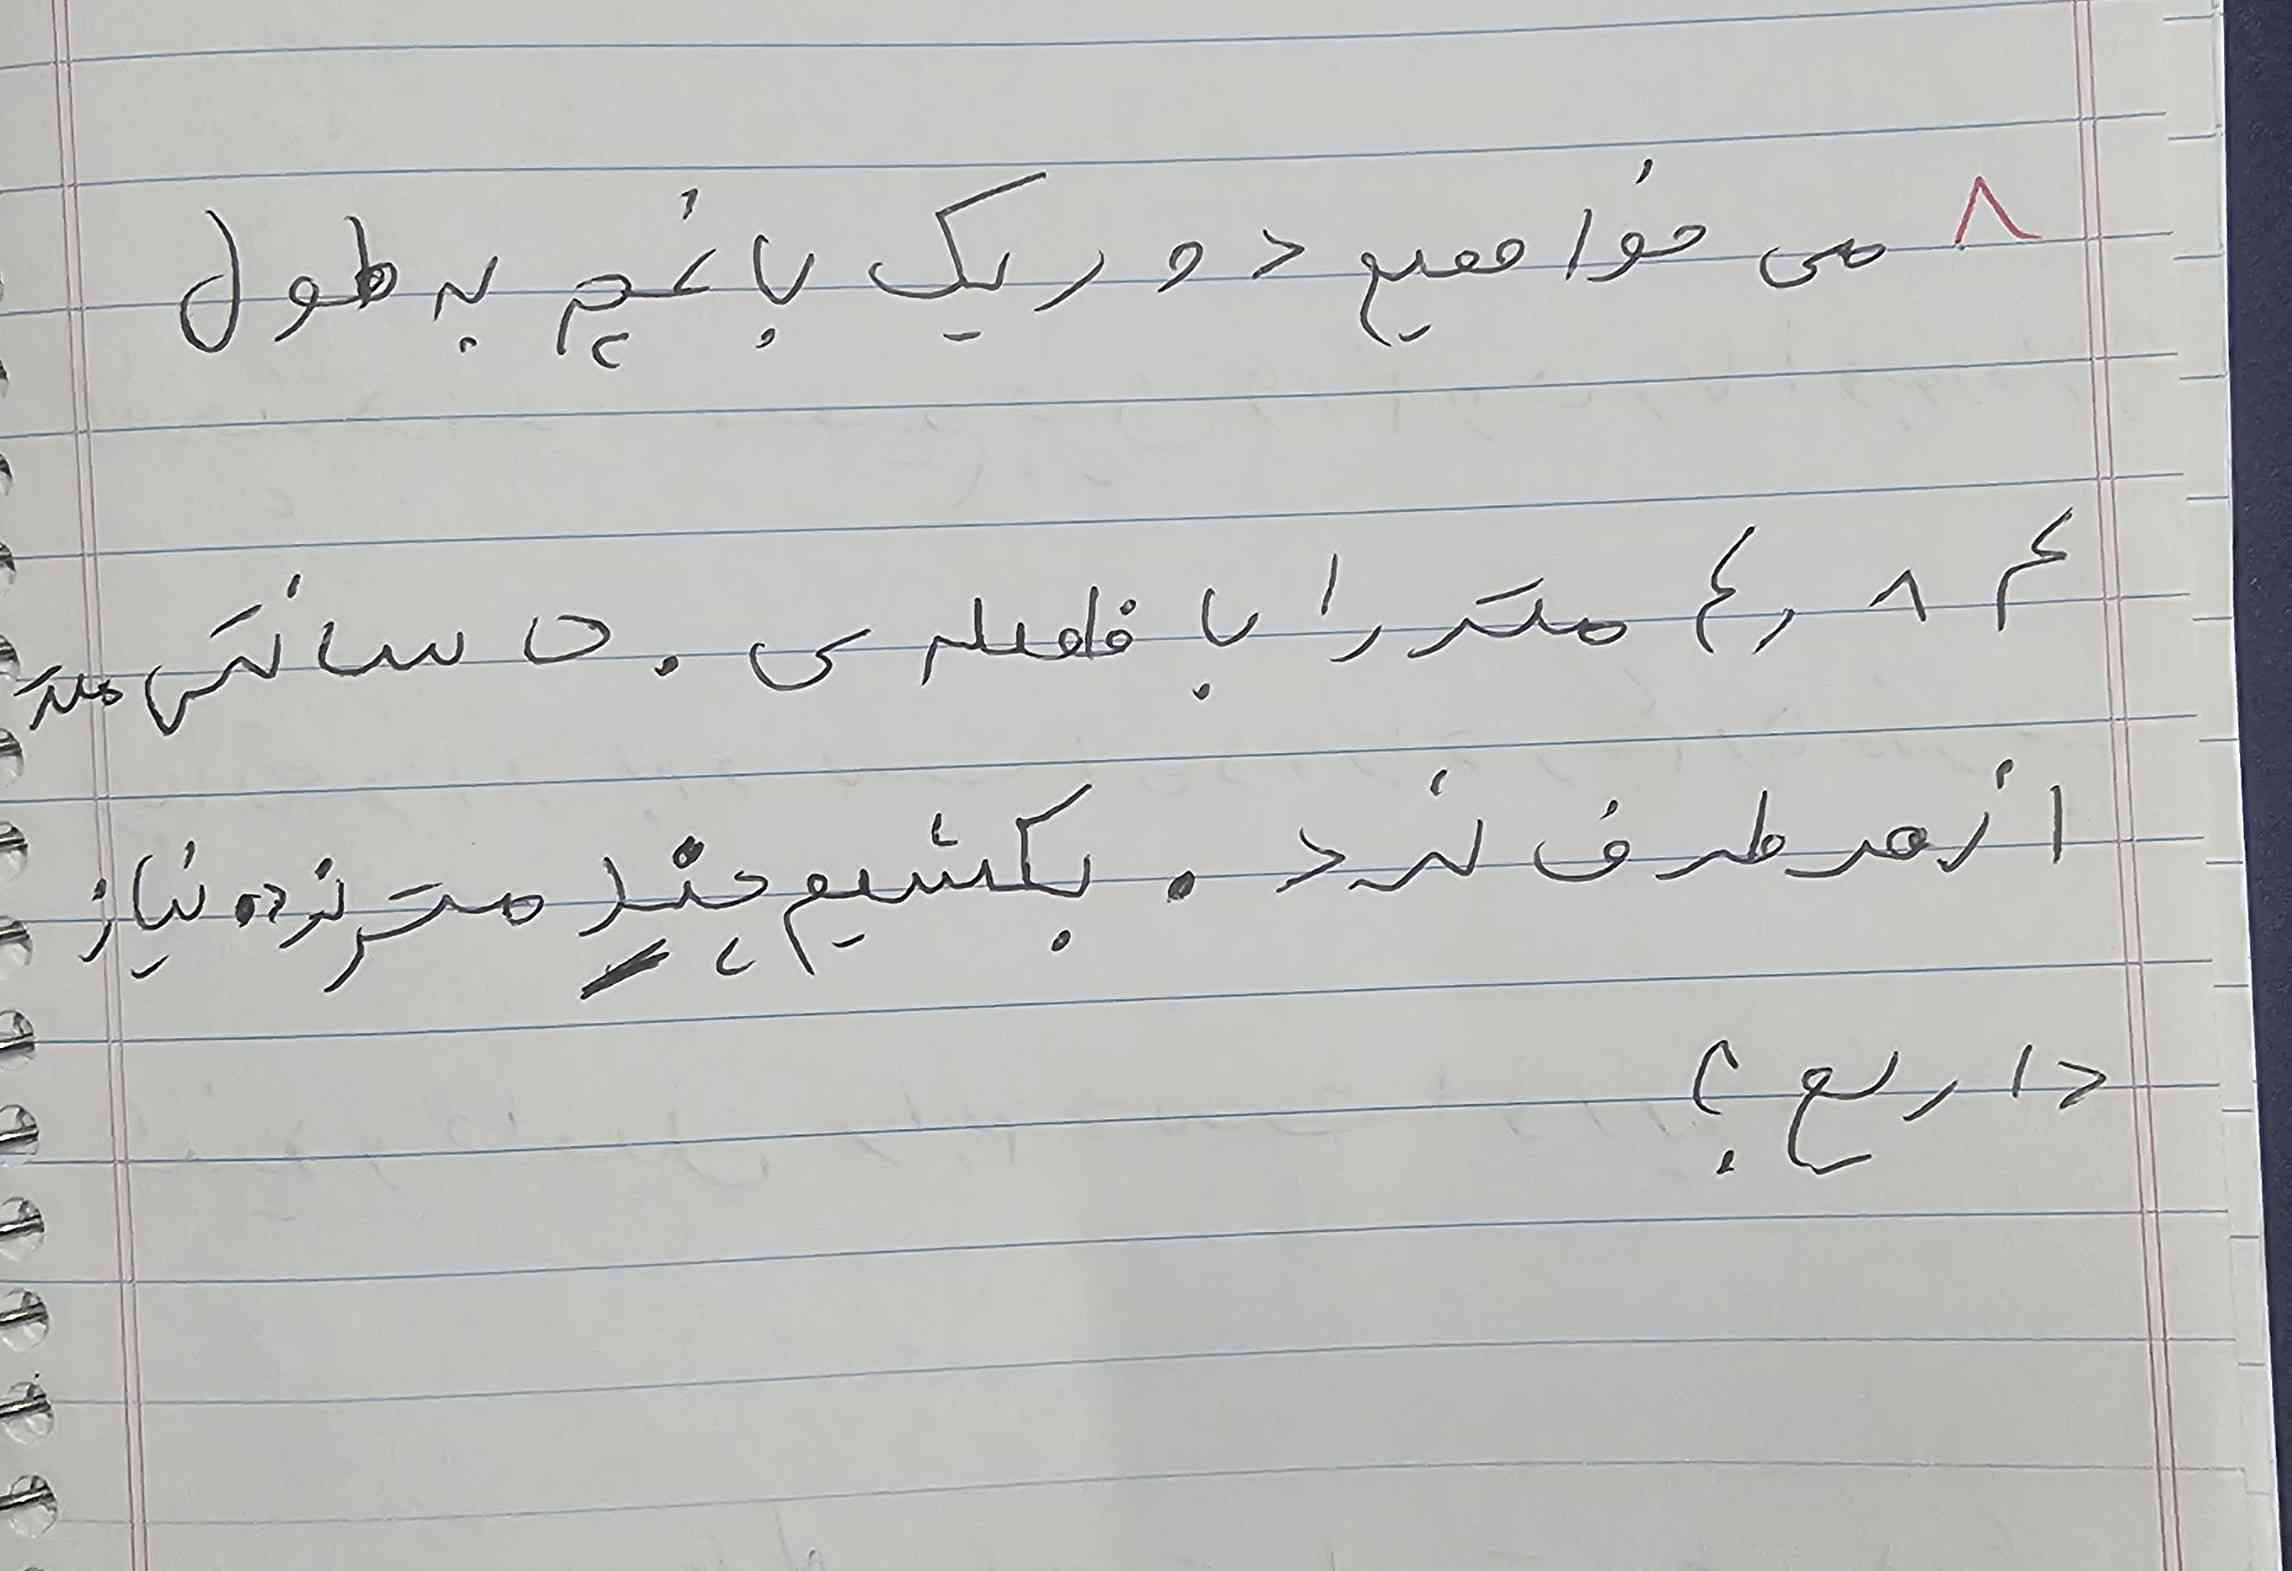 ۸ می خواهیم دور یک باغچه به طول
۴ ۸ ر۴ متر را با فاصله ی ۵۰ سانتی متر
از هر طرف نرد ه بکشیم چند متر نرده نیاز
داریم ؟